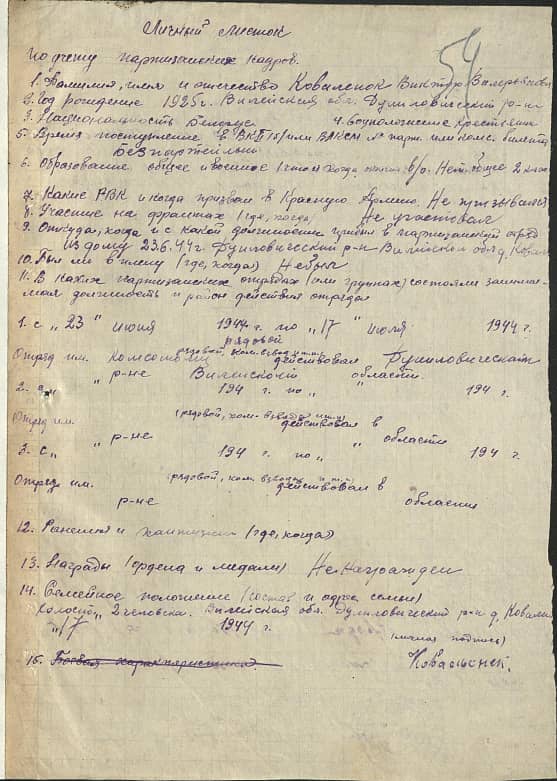 Личный листок
54
по учету партизанских кадров.
1. Фамилия, имя и отчество Коваленок Виктор Валерьянови
2. Год рождение 1925 г. Вилейская обл. Дуниловический р-н
3. Национальность Белорус 4. Соцположение Крестьянин
5. Время поступление в ВКП(б) или ВЛКСМ № парт. или комс. билета
Безпартейный
6. Образование общее и военное (что и когда в/о. Нет, общее 2 класса
7. Какие РВК и когда призван в Красную Армию. Не призывался
8. Участие на фронтах (где, когда) Не участвовал
9. Откуда, когда и с какой должности прибыл в партизанский отряд
из дому 23.6.44 г. Дуниловический р-н Вилейской обл. д. Ковали
10. Был ли в плену (где, когда) Не был
11. В каких партизанских отрядах (или группах) состоял, занимае-
мая должность и район действия отряда
1. с „23" июня 1944 г. по „17" июля 1944 г.
рядовой
Отряд им. Комсомола рядовой, ком. взвода и т.п. действовал Дуниловическом
„ р-не Вилейской области
2. „ „ 194 г. по „ „ 194 г.
Отряд им. (рядовой, ком. взвода и т.п.) действовал в
„ р-не области
3. с „ „ 194 г. по „ „ 194 г.
Отряд им. (рядовой, ком. взвода и т.п.) действовал в
р-не области
12. Ранения и контузии (где, когда)
13. Награды (ордена и медали) Не награжден
14. Семейное положение (состав и адрес семьи)
Холост, 2 человека. Вилейская обл. Дуниловический р-н д. Ковали
„17 1944 г.
(личная подпись)
15. Боевая характеристика. Коваленок.